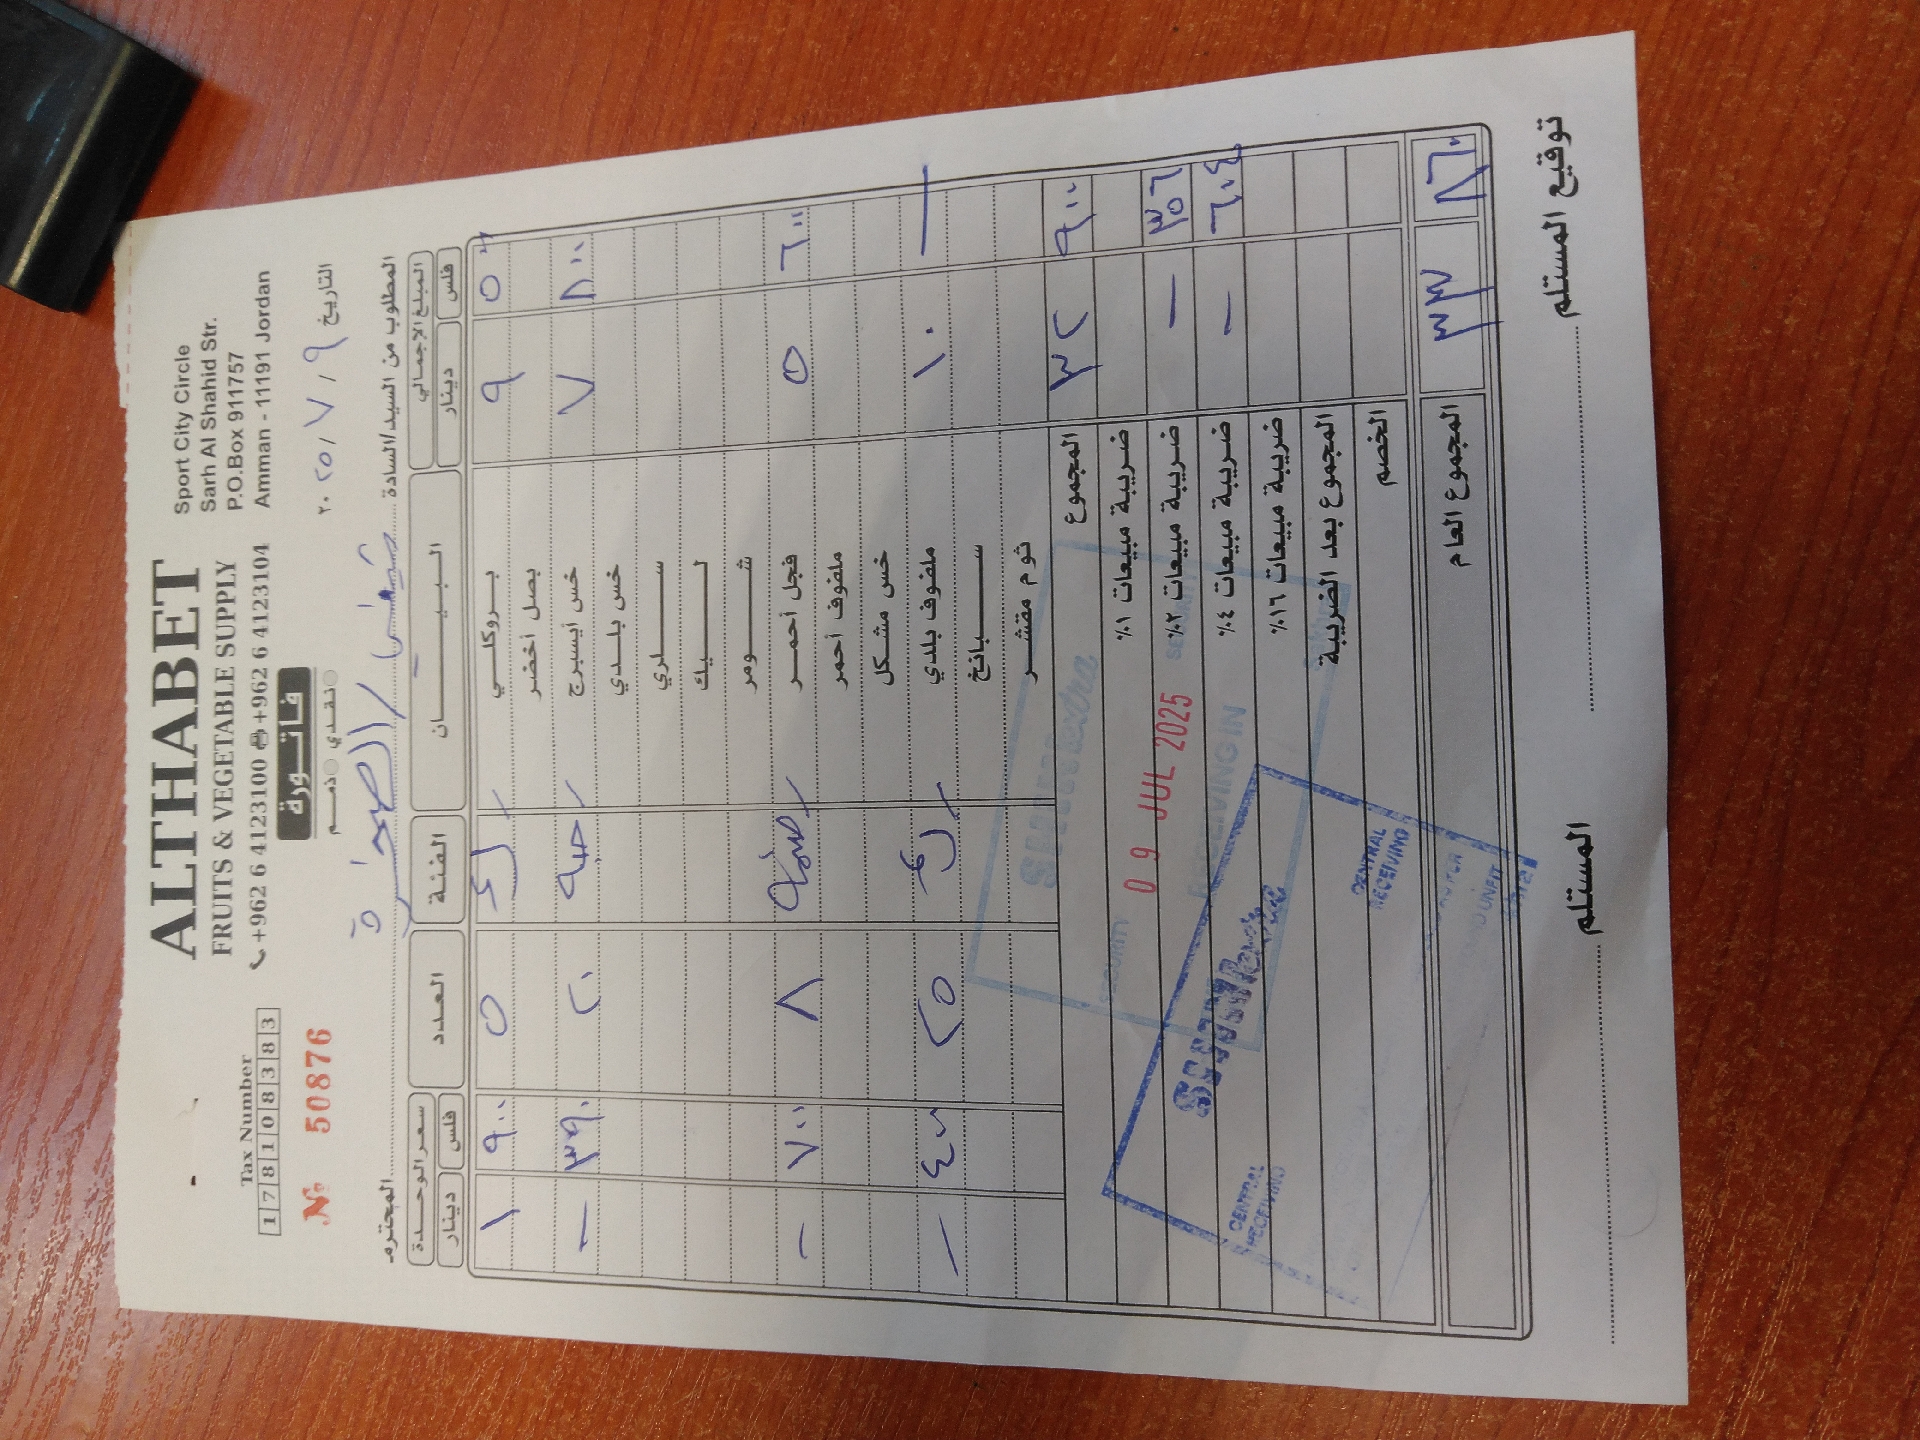 ALTHABET
FRUITS & VEGETABLE SUPPLY
+962 6 4123100 +962 6 4123104
Sport City Circle
Sarh Al Shahid Str.
P.O.Box 911757
Amman - 11191 Jordan
Tax Number
1 7 8 1 0 8 3 8 3
№ 50876
فاتورة
نقدي ذمم
التاريخ ٩ / ٧ / ٢٠٢٥
المطلوب من السيد/السادة المحترم
المبلغ الإجمالي البيان الفئة العدد سعر الوحدة
فلس دينار فلس دينار
٩ بروكلي ٥ ٩٠٠ ١
بصل أخضر
٨٠٠ ٧ خس أيسبرج حبة ٢٠ ٣٩٠ -
خس بلدي
سلري
ليك
شومر
٦٠٠ ٥ فجل أحمر ٨ ٧٠٠ -
ملفوف أحمر
خس مشكل
- ١٠ ملفوف بلدي ٢٥ ٤٠٠ -
سبانخ
ثوم مقشر
٩٠٠ ٣٢ المجموع
ضريبة مبيعات ١%
٣٥٦ - ضريبة مبيعات ٢%
٦٠٤ - ضريبة مبيعات ٤%
ضريبة مبيعات ١٦%
المجموع بعد الضريبة
الخصم
٨٦٠ ٣٣ المجموع العام
SECURITY
09 JUL 2025
RECEIVING IN
CENTRAL
RECEIVING
CENTRAL
RECEIVING
توقيع المستلم المستلم